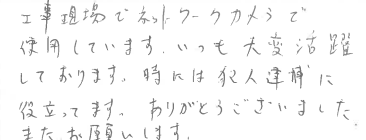 工事現場でネットワークカメラで
使用しています。いつも大変活躍
しております。時には犯人逮捕に
役立ってます。ありがとうございました。
またお願いします。